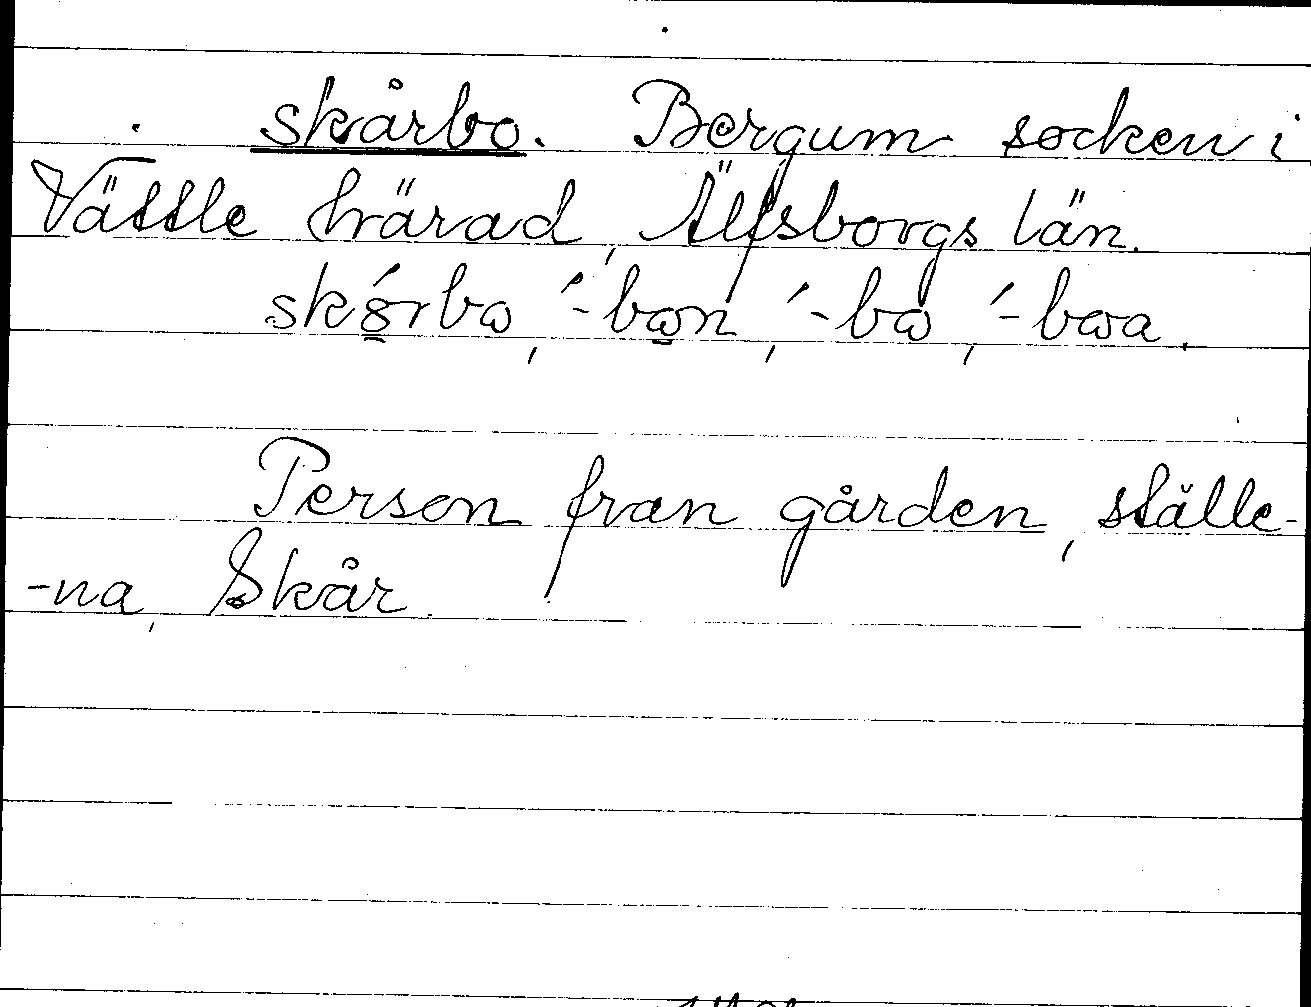 skårbo. Bergum socken i
Vättle härad, Älfsborgs län.
skórbω, ́-bωn, ́-bω, ́-bωa.
Person från gården, ställe-
-na, Skår.